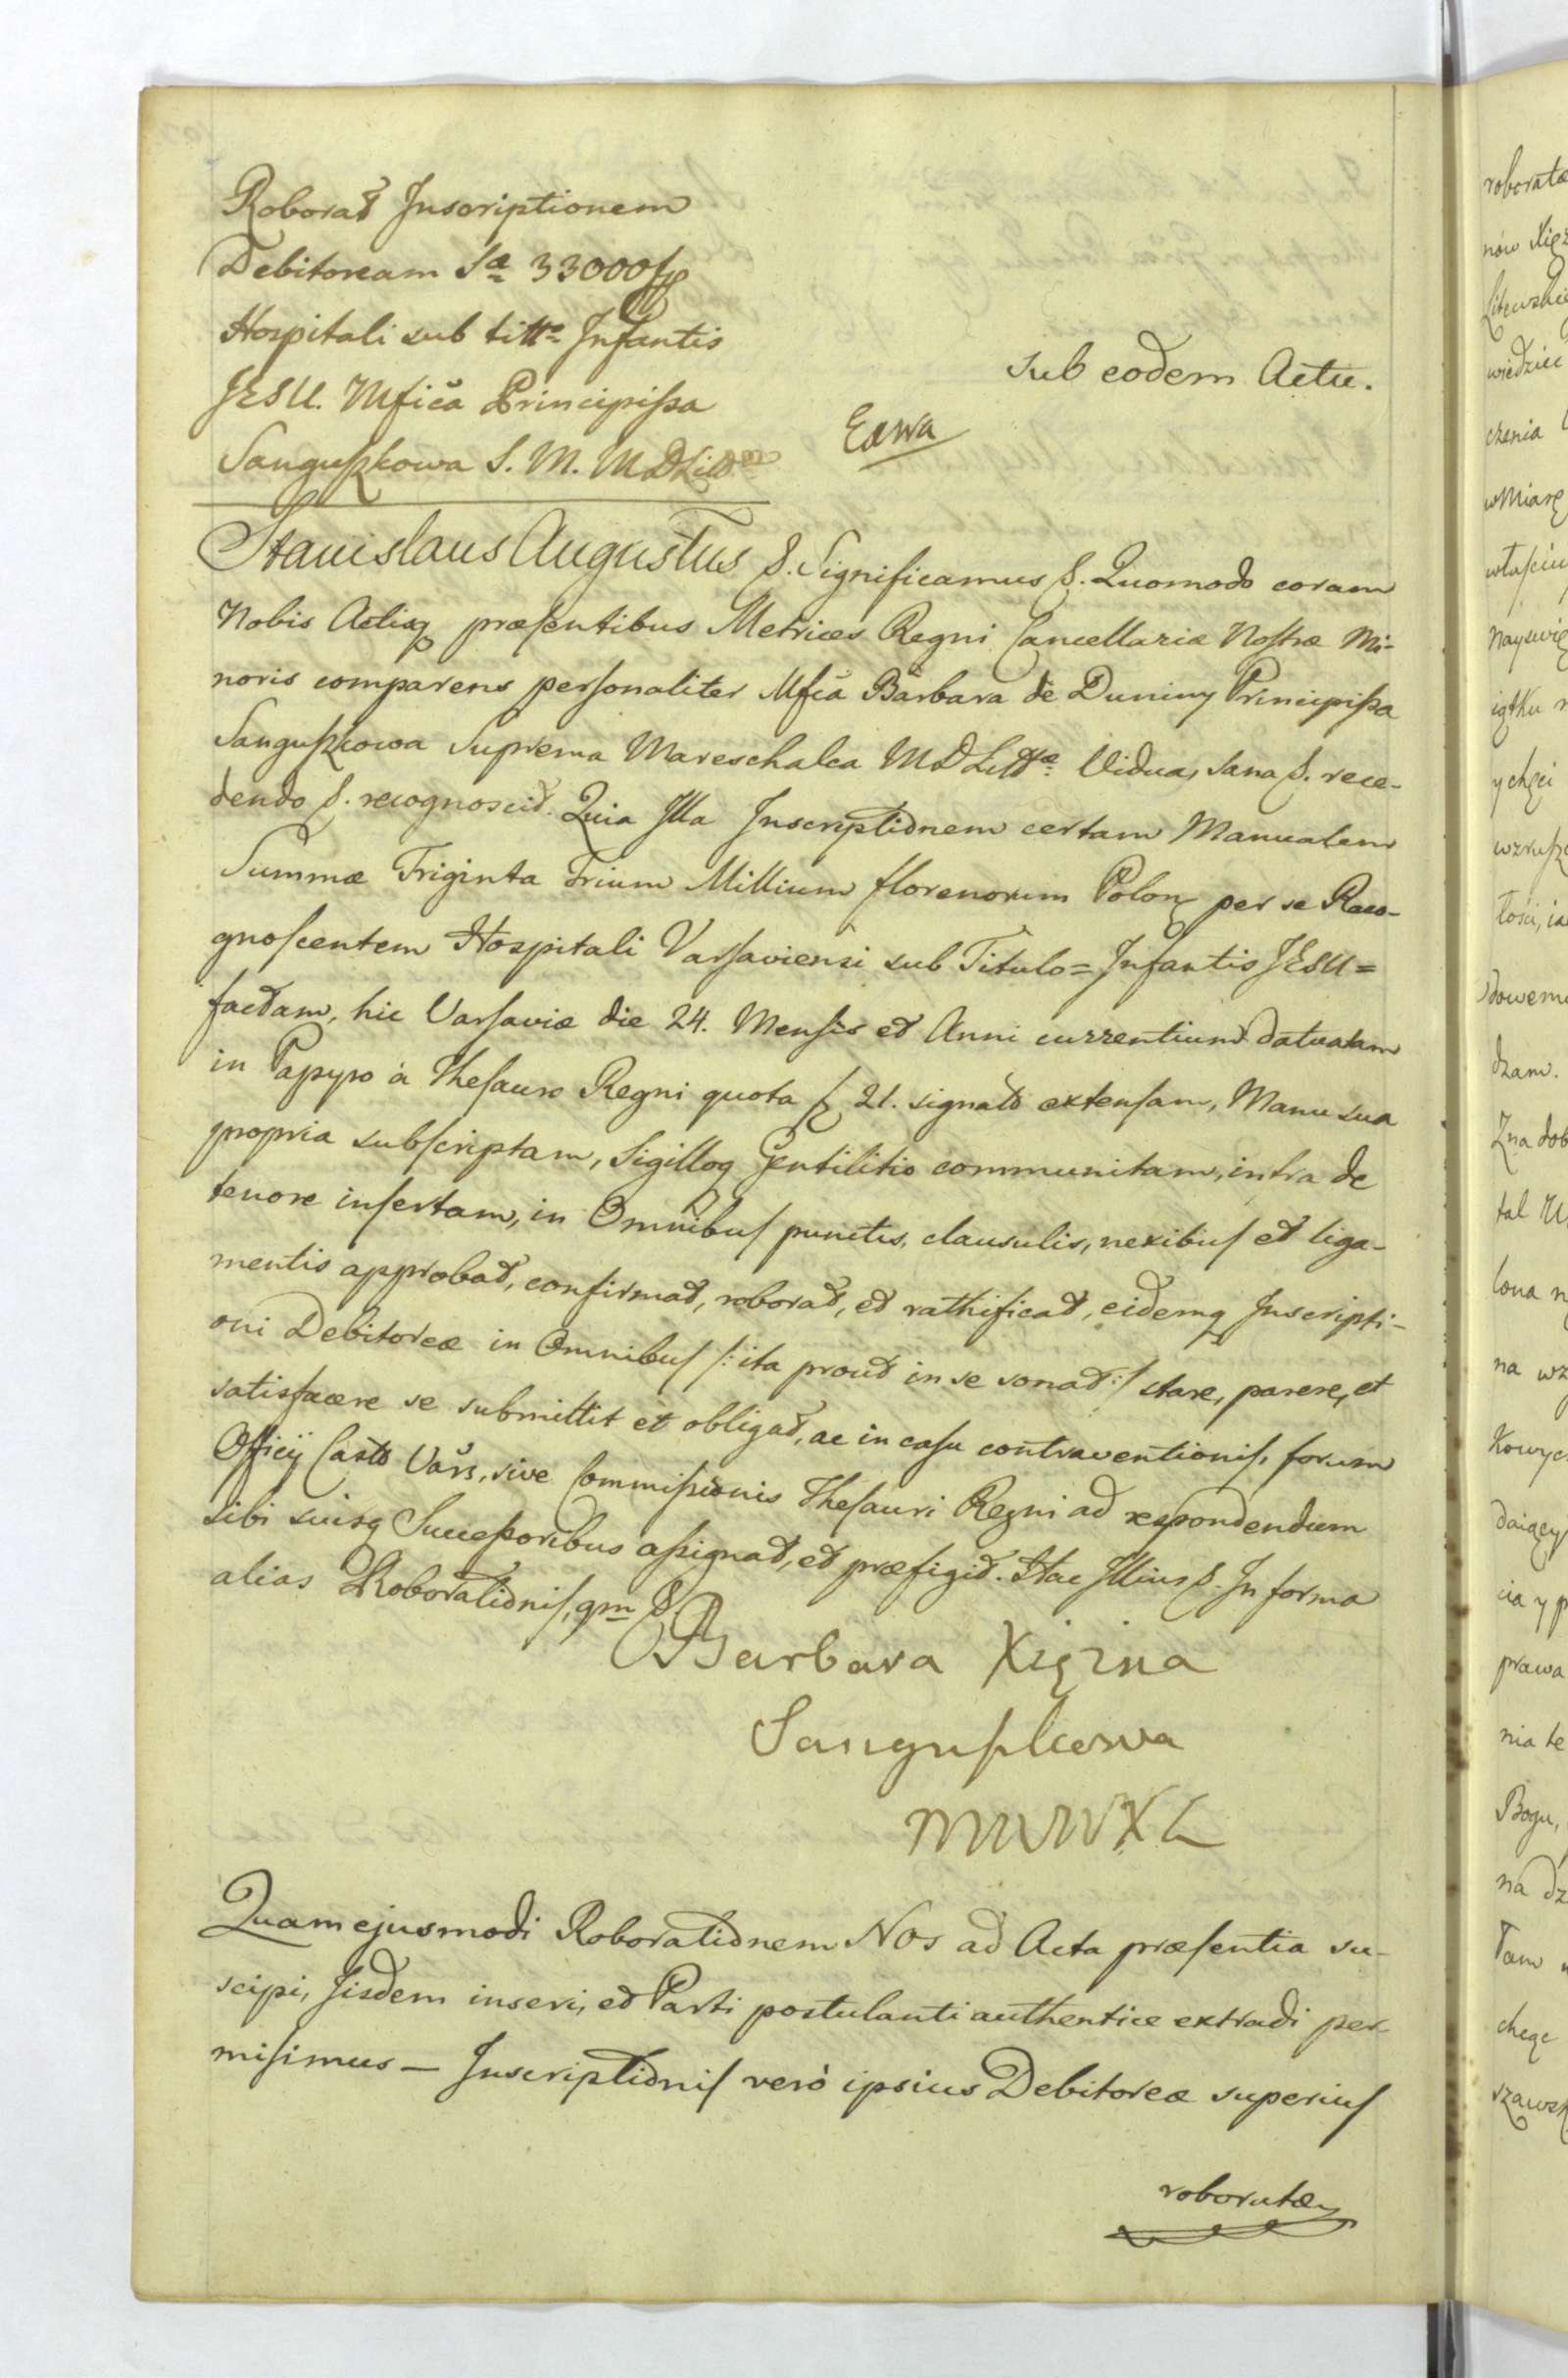 Roborat Inscriptionem
Debitoream Sæ 33000 fp
Hospitali sub titto Infantis
JESU. Mfica Principissa
Sanguszkowa S. M. M D Litt
sub eodem Actu.
Stanislaus Augustus &. Significamus &. Quomodo coram
Nobis Actisq præsentibus Metrices Regni Cancellariæ Nostræ Mi-
noris comparens personaliter Mfca Barbara de Duniny Principissa
Sanguszkowa Suprema Mareschalca M D Littæ Vidua, sana &. rece-
dendo &. recognoscit. Quia Illa Inscriptionem certam Manualem
Summæ Triginta Trium Millium florenorum Polon per se Reco-
gnoscentem Hospitali Varsaviensi sub Titulo = Infantis JESU =
factam, hic Varsaviæ die 24. Mensis et Anni currentium datvatam
in Papyro à Thesauro Regni quota f 21. signato extensam, Manu sua
propria subscriptam, Sigilloq Gentilitio communitam, intra de
tenore insertam, in Omnibus punctis, clausulis, nexibus et liga-
mentis approbat, confirmat, roborat, et rathificat, eidemq Inscripti-
oni Debitoreæ in Omnibus /: ita prout in se sonat :/ stare, parere, et
satisfacere se submittit et obligat, ac in casu contraventionis, forum
Officij Castr Vars, sive Commissionis Thesauri Regni ad respondendum
sibi suisq Successoribus assignat, et præfigit. Hac Illius &. In forma
alias Roborationis, qm &
Barbara Xiężna
Sanguszkowa
MWWXL
Quam ejusmodi Roborationem Nos ad Acta præsentia su-
scipi, Iisdem inseri, et Parti postulanti authentice extradi per-
misimus — Inscriptionis verò ipsius Debitoreæ superius
roboratæ
roboratæ
nów Xięż
Litewskie
wiedzieć
czenia
w Miarę
własciu
Nayswię
iątku
y chęci
wzrusz
łości, ia
dowem
dzam.
Zna dob
tal
lona
na
kowyc
daiący
cia y p
prawa
nia te
Bogu,
na dz
tam
chcąc
szawsk